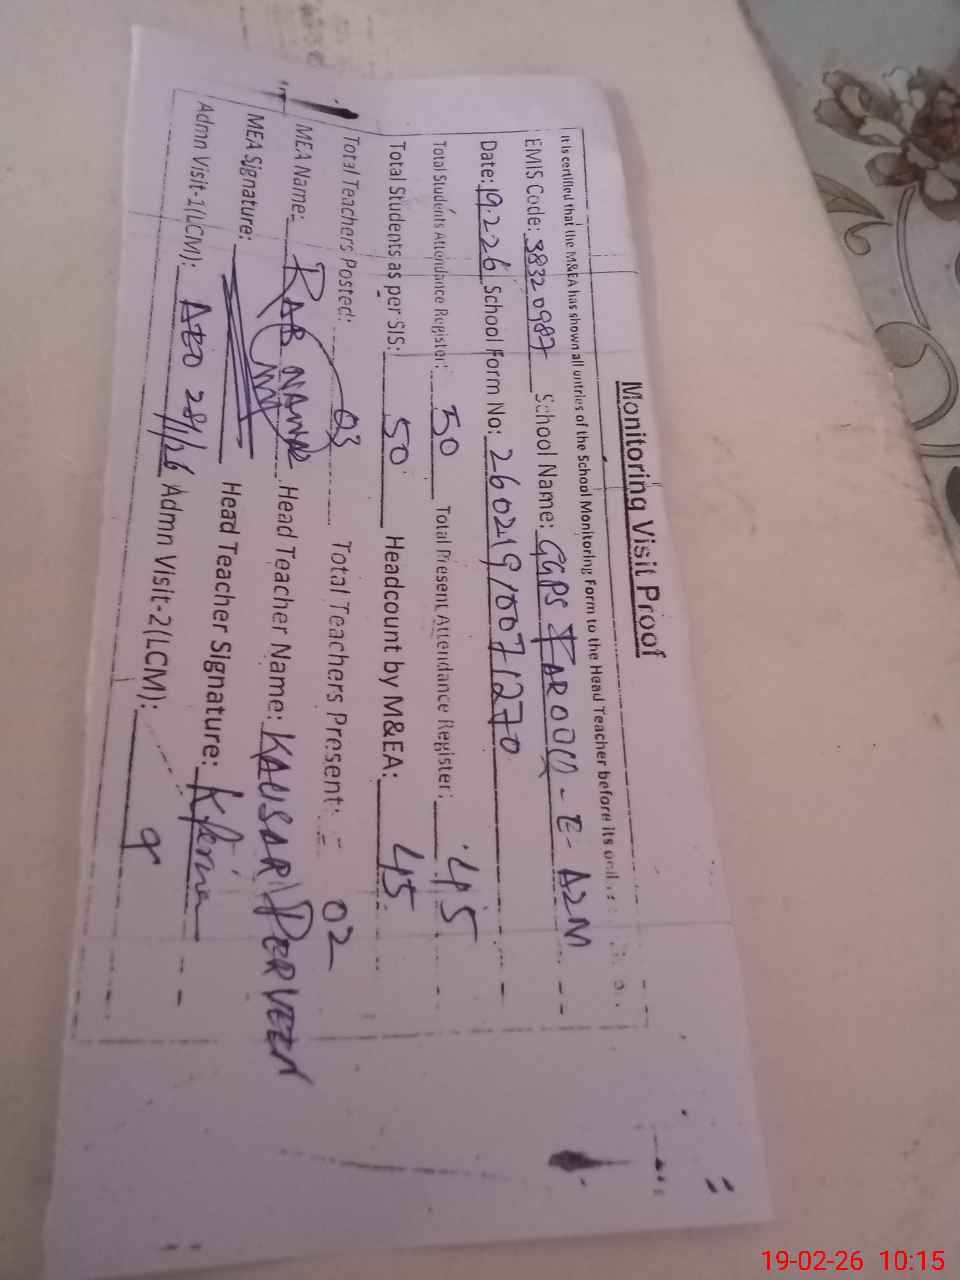 Monitoring Visit Proof
It is certified that the M&EA has shown all entries of the School Monitoring Form to the Head Teacher before its
EMIS Code: 38320987 School Name: GGPS FAROOQ-E-AZM
Date: 19.2.26 School Form No: 26021910071270
Total Students Attendance Register: 50 Total Present Attendance Register: 45
Total Students as per SIS: 50 Headcount by M&EA: 45
Total Teachers Posted: 03 Total Teachers Present: 02
MEA Name: RAB NAWAZ Head Teacher Name: KAUSAR PERVEEN
MEA Signature: Head Teacher Signature:
Admn Visit-1(LCM): AEO 28/1/26 Admn Visit-2(LCM):
19-02-26 10:15